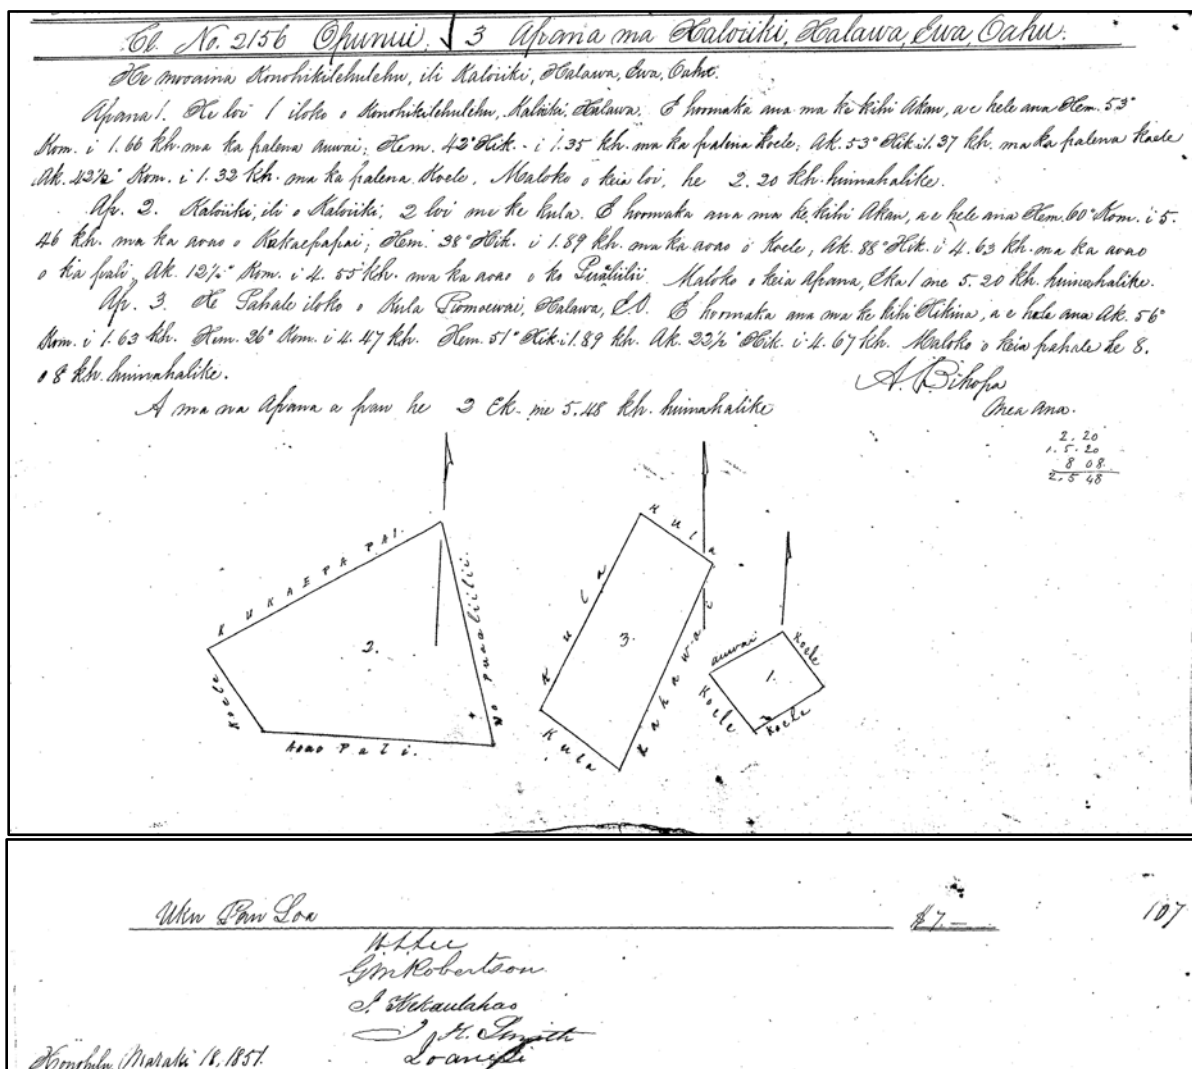 Cl. No. 2156 Opunui. 3 Apana ma Kaloiiki, Halawa, Ewa, Oahu.
He mooaina Konohikilehulehu, ili Kaloiiki, Halawa, Ewa, Oahu.
Apana 1. He loi 1 iloko o Konohikilehulehu, Kaloiiki, Halawa. E hoomaka ana ma ke kihi Akau, a e hele ana Hem. 53°
Kom. i 1.66 kh. ma ka palena auwai; Hem. 42° Hik. i 1.35 kh. ma ka palena Koele; Ak. 53° Hik. i 1.37 kh. ma ka palena Koele
Ak. 42½° Kom. i 1.32 kh. ma ka palena Koele. Maloko o keia loi, he 2.20 kh. huinahalike.
Ap. 2. Kaloiiki, ili o Kaloiiki, 2 loi me ke kula. E hoomaka ana ma ke kihi Akau, a e hele ana Hem. 60° Kom. i 5.
46 kh. ma ka aoao o Kukaepapai; Hem. 38° Hik. i 1.89 kh. ma ka aoao o Koele, Ak. 88° Hik. i 4.63 kh. ma ka aoao
o ka pali, Ak. 12½° Kom. i 4.55 kh. ma ka aoao o ko Pualiilii. Maloko o keia apana, Eka 1 me 5.20 kh. huinahalike.
Ap. 3. He Pahale iloko o Kula Halawa, E.O. E hoomaka ana ma ke kihi Hikina, a e hele ana Ak. 56°
Kom. i 1.63 kh. Hem. 26° Kom. i 4.47 kh. Hem. 51° Hik. i 1.89 kh. Ak. 22½° Hik. i 4.67 kh. Maloko o keia pahale he 8.
08 kh. huinahalike.
A. Bihopa
A ma na Apana a pau he 2 Ek. me 5.48 kh. huinahalike
Mea Ana.
2.20
1.5.20
8 08
2.5 48
KUKAEPAPAI.
2.
Koele
Aoao Pali.
No Puaaliilii.
Kula
Kula
3.
Kahawai
Kula
auwai
Koele
1.
Koele
Koele
Uku Pau Loa $7.— 107
W.L. Lee
G M Robertson
J. Kekaulahao
J. H. Smith
Loanesi
Honolulu Maraki 18, 1851.